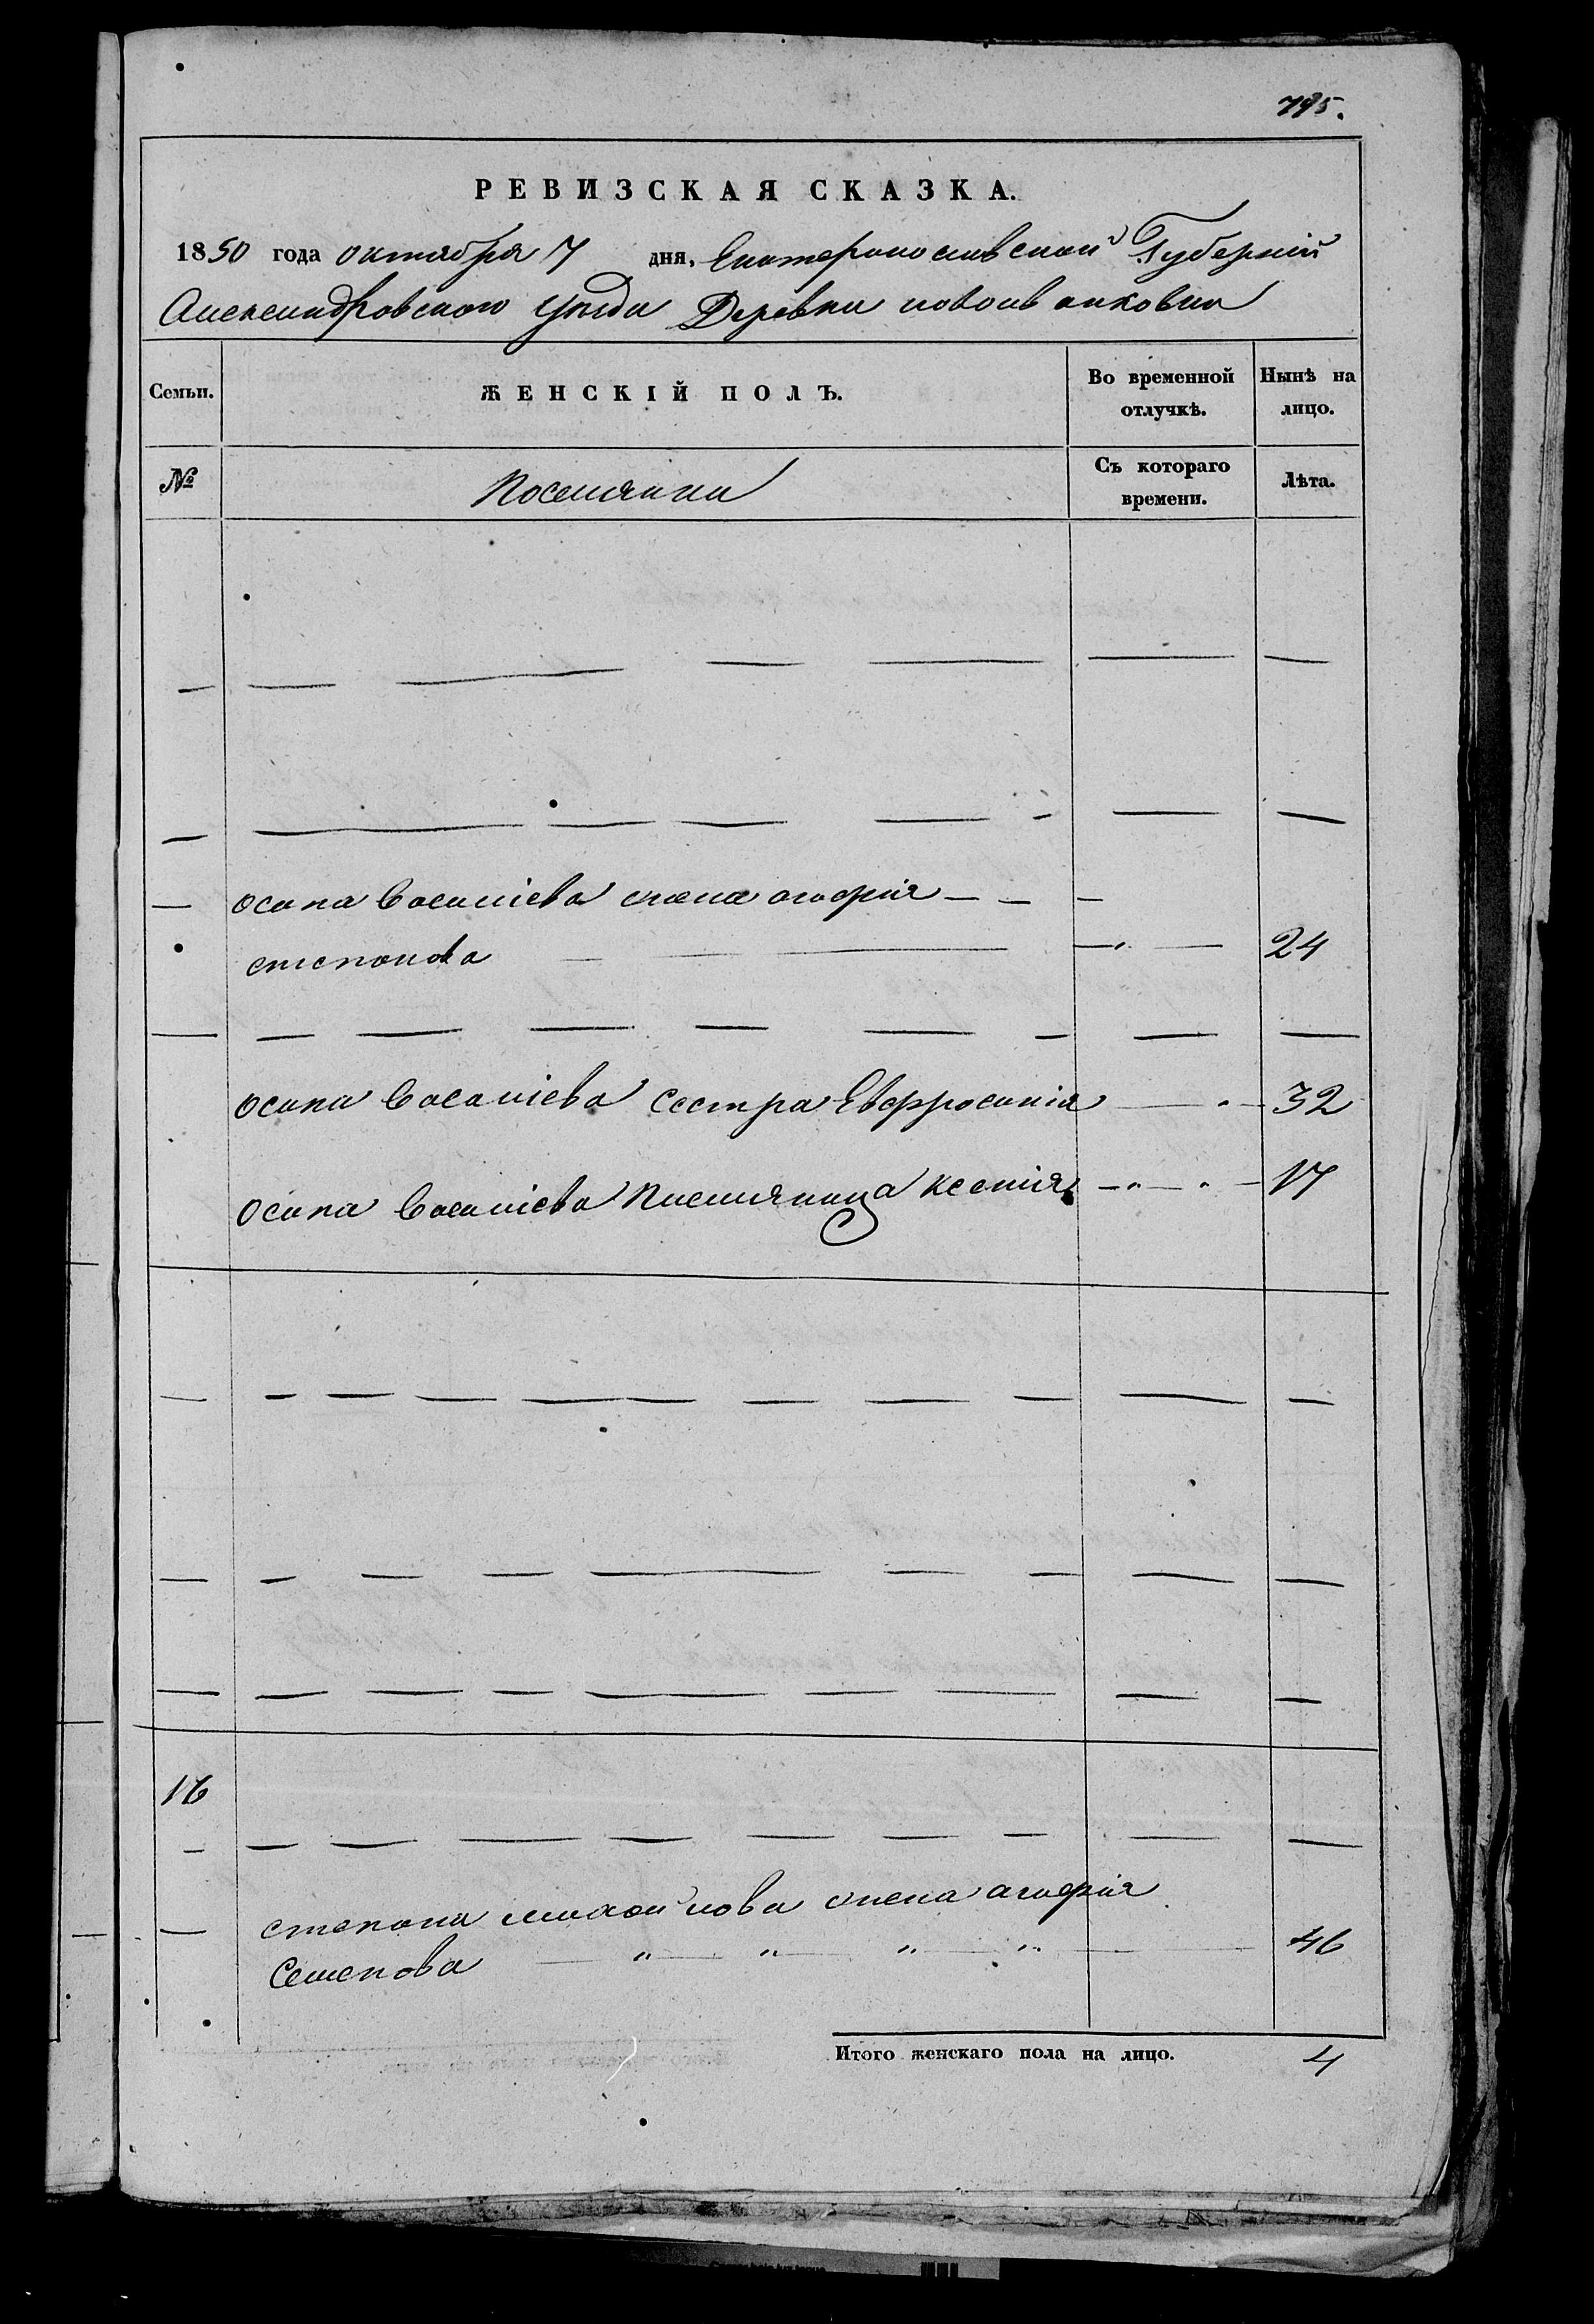 795.
РЕВИЗСКАЯ СКАЗКА.
1850 года октября 7 дня, Екатеринославской Губерніи
Александровского уезда Деревни новоивановки
Семьи. ЖЕНСКІЙ ПОЛЪ. Во временной отлучкѣ. Нынѣ на лицо.
№ Поселянки Съ котораго времени. Лѣта.
осипа Василіева жена агафія
степанова 24
осипа Василіева сестра Евфросинія 32
осипа Василіева племяница ксенія 17
16
степана михайлова жена агафія
Семенова 46
Итого женскаго пола на лицо. 4